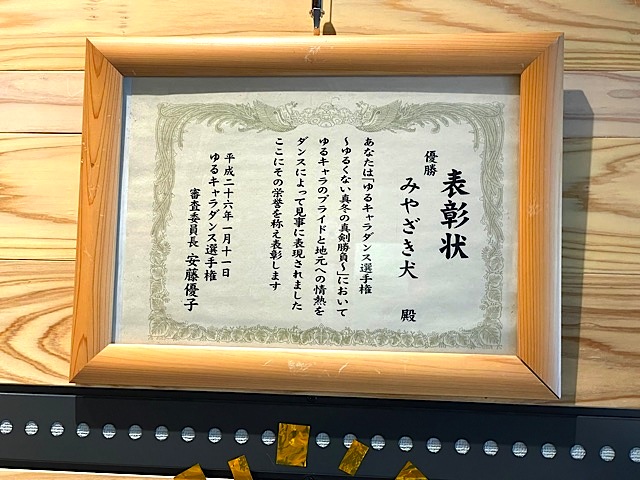 表彰状
優勝
みやざき犬 殿
あなたは「ゆるキャラダンス選手権
～ゆるくない真冬の真剣勝負～」において
ゆるキャラのプライドと地元への情熱を
ダンスによって見事に表現されました
ここにその栄誉を称え表彰します
平成二十六年一月十一日
ゆるキャラダンス選手権
審査委員長 安藤優子